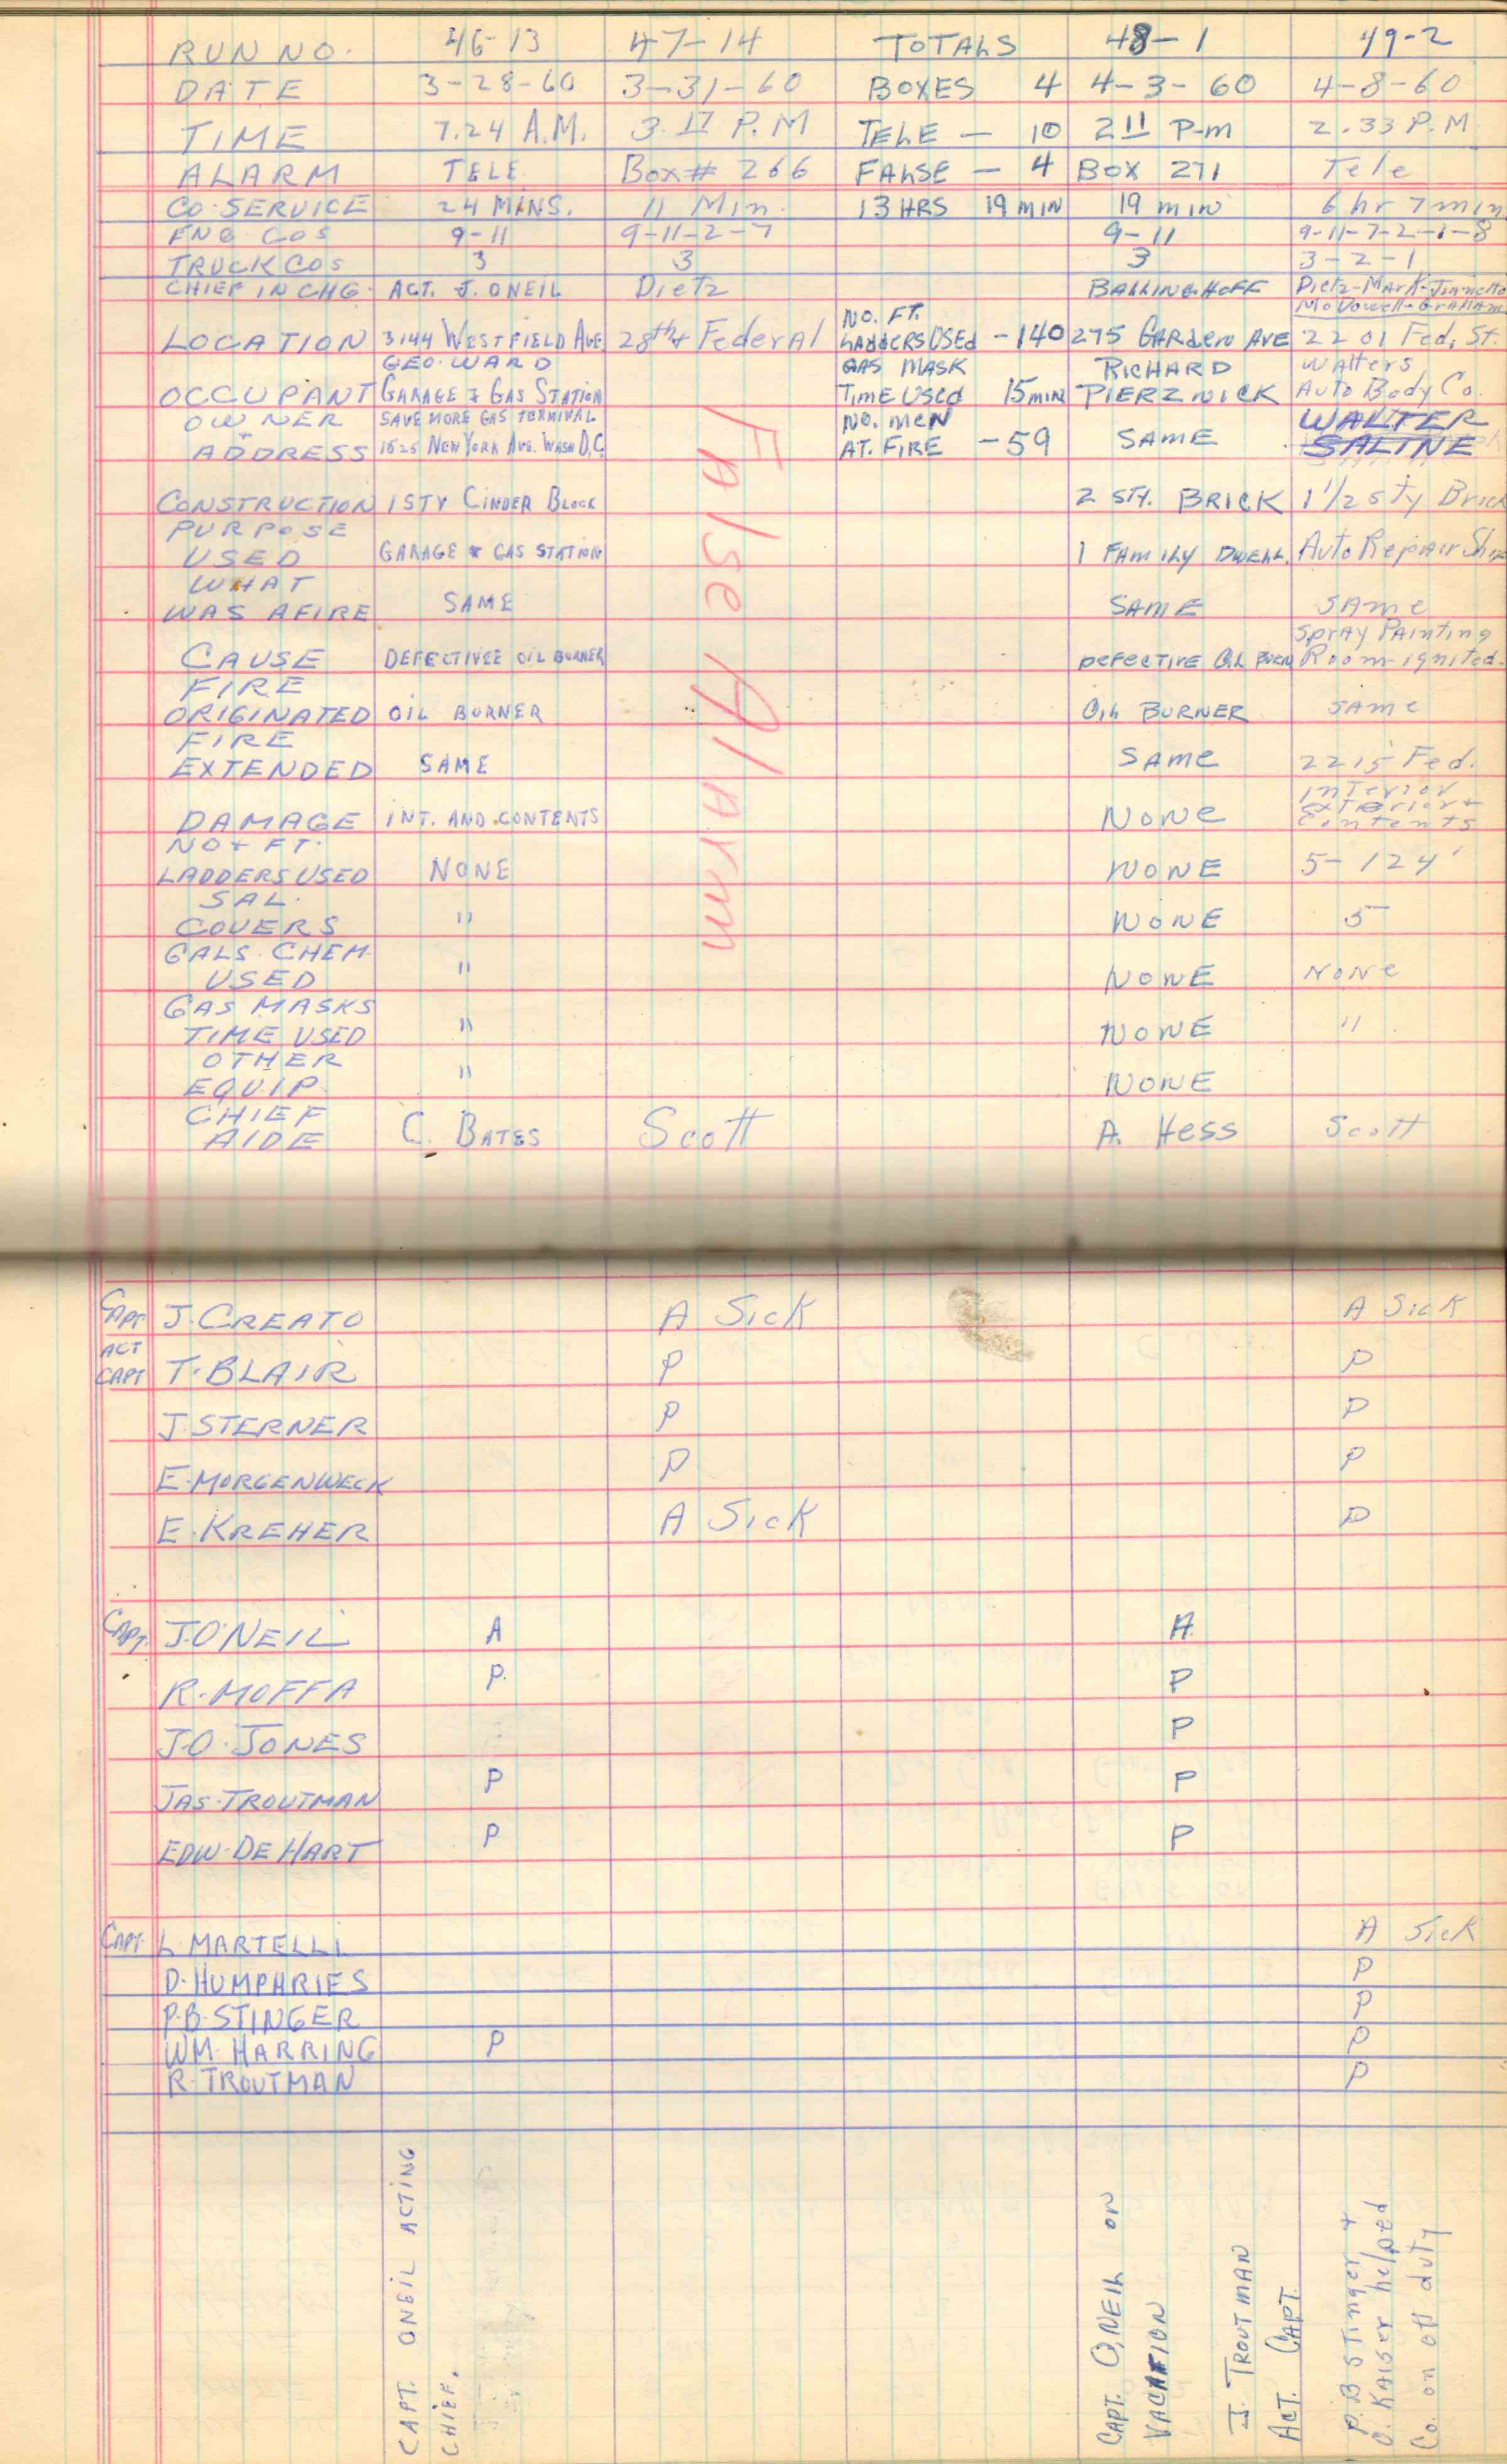 RUN NO. 46-13 47-14 TOTALS 48-1 49-2
DATE 3-28-60 3-31-60 BOXES 4 4-3-60 4-8-60
TIME 7.24 A.M. 3.17 P.M TELE - 10 2 11 P-m 2.33 P.M
ALARM TELE. Box# 266 FALSE - 4 BOX 271 Tele
CO. SERVICE 24 MINS. 11 Min. 13 HRS 19 MIN 19 MIN 6 hr 7 min
ENG COS 9-11 9-11-2-7 9-11 9-11-7-2-1-8
TRUCK COS 3 3 3 3-2-1
CHIEF IN CHG. ACT. J. ONEIL Dietz BALLINGHOFF Dietz-Mark-Jinnetto
McDowell-Graham
LOCATION 3144 WESTFIELD AVE. 28th + Federal NO. FT. LADDERS USEd -140 275 GARdEN AVE 2201 Fed. St.
OCCUPANT GEO. WARD GARAGE & GAS STATION GAS MASK TIME USEd 15 MIN RICHARD PIERZNICK Walters Auto Body Co.
OWNER + ADDRESS SAVE MORE GAS TERMINAL 1525 NEW YORK AVE. WASH D.C. NO. MEN AT. FIRE -59 SAME WALTER SALINE
CONSTRUCTION 1 STY CINDER BLOCK 2 STY. BRICK 1 1/2 sty Brick
PURPOSE
USED GARAGE & GAS STATION 1 FAMILY DWELL. Auto Repair Shop
WHAT
WAS AFIRE SAME SAME SAME
CAUSE DEFECTIVEE OIL BURNER DEFECTIVE OIL BURN Spray Painting Room-ignited.
FIRE
ORIGINATED OIL BURNER OIL BURNER SAME
FIRE
EXTENDED SAME SAME 2215 Fed.
DAMAGE INT. AND CONTENTS NONE Interior Exterior + Contents
NO + FT.
LADDERS USED NONE NONE 5-124'
SAL.
COVERS " NONE 5
GALS. CHEM.
USED " NONE NONE
GAS MASKS
TIME USED " NONE "
OTHER
EQUIP. " NONE
CHIEF
AIDE C. BATES Scott A. Hess Scott
False Alarm
CAPT. J. CREATO A Sick A Sick
ACT
CAPT T. BLAIR P P
J. STERNER P P
E. MORGENWECK P P
E. KREHER A Sick P
CAPT. J. O'NEIL A A.
R. MOFFA P. P
J.O. JONES P
JAS. TROUTMAN P P
EDW. DE HART P P
CAPT. L MARTELLI A Sick
D. HUMPHRIES P
P.B. STINGER P
WM. HARRING P P
R. TROUTMAN P
CAPT. ONEIL ACTING
CHIEF.
CAPT. O,NEIL ON
VACATION
J. TROUTMAN
ACT. CAPT.
P.B STinger +
O. KAISER helped
Co. on off duty